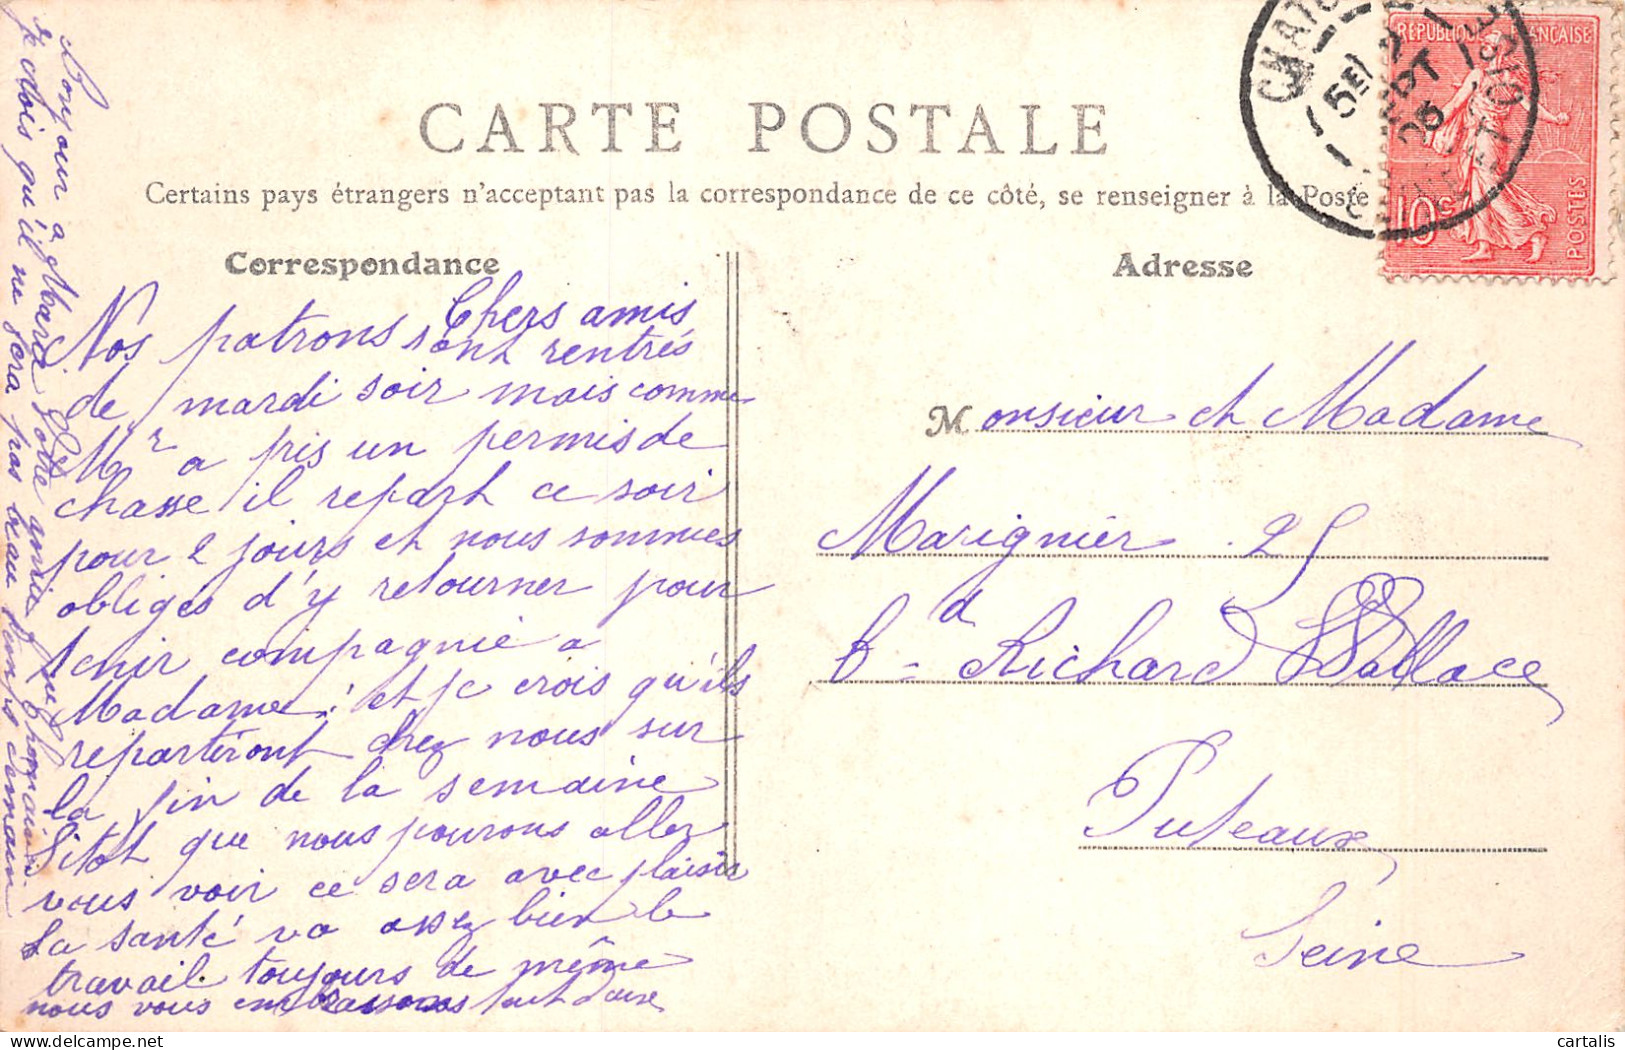 CARTE POSTALE
Certains pays étrangers n'acceptant pas la correspondance de ce côté, se renseigner à la Poste
RÉPUBLIQUE FRANÇAISE
10c
POSTES
SEPT
05
Correspondance
Chers amis
Nos patrons sont rentrés
de mardi soir mais comme
Mr a pris un permis de
chasse il repart ce soir
pour 2 jours et nous sommes
obligés d'y retourner pour
tenir compagnie a
Madame et je crois qu'ils
repartiront chez nous sur
la fin de la semaine
Sitot que nous pourons aller
vous voir ce sera avec plaisir
La santé va assez bien le
travail toujours de même
nous vous embrassons tout deux
Bonjour a votre amie
je dois qu'il ne fera pas beau temps demain
Adresse
Monsieur et Madame
Marignier 25
Bd Richard Wallace
Puteaux
Seine
delcampe.net
cartalis